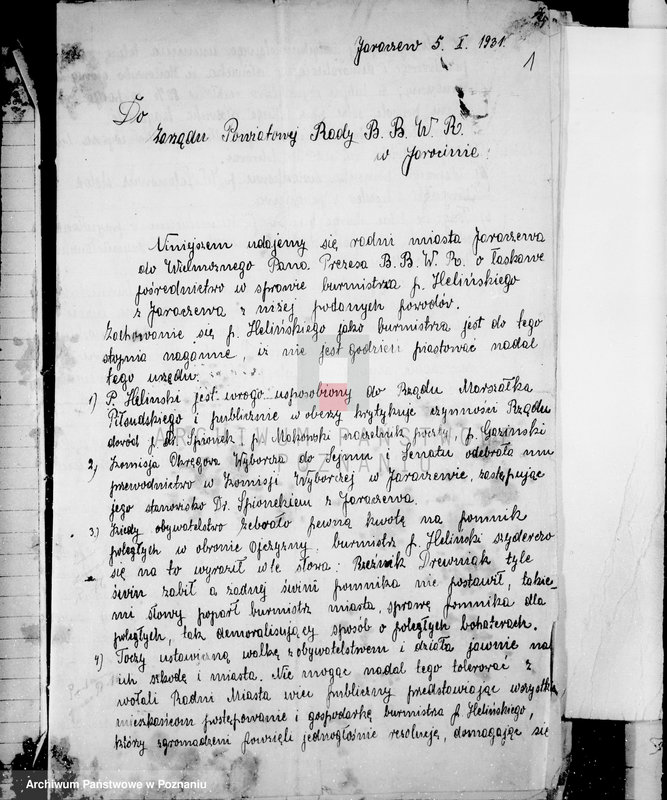 Jaraczew 5. I. 1931.
1
Do
Zarządu Powiatowej Rady B. B. W. R.
w Jarocinie
Niniejszem udajemy się radni miasta Jaraczewa
do Wielmożnego Pana Prezesa B. B. W. R. o łaskawe
pośrednictwo w sprawie burmistrza p. Helińskiego
z Jaraczewa z niżej podanych powodów.
Zachowanie się p. Helińskiego jako burmistrza jest do tego
stopnia naganne, iż nie jest godzien piastować nadal
tego urzędu.
1) P. Heliński jest wrogo usposobiony do Rządu Marszałka
Piłsudskiego i publicznie w obeży krytykuje czynności Rządu
dowód p. Dr. Spionek, p. Makowski naczelnik poczty, p. Gaziński
2.) Komisja Okręgowa Wyborcza do Sejmu i Senatu odebrała mu
przewodnictwo w Komisji Wyborczej w Jaraczewie, zastępując
jego stanowisko Dr. Spionekiem z Jaraczewa.
3.) Kiedy obywatelstwo zebrało pewną kwotę na pomnik
poległych w obronie Ojczyzny, burmistrz p. Heliński szyderczo
się na to wyraził w te słowa: Rzeźnik Drewniak tyle
świn zabił a żadnej świni pomnika nie postawił, takie-
mi słowy poparł burmistrz miasta, sprawę pomnika dla
poległych, tak demoralisujący sposób o poległych bohaterach.
4) Toczy ustawiczną walkę z obywatelstwem i działa jawnie na
ich szkodę i miasta. Nie mogąc nadal tego tolerować z
wołali Radni Miasta wiec publiczny przedstawiając wszystkim
mieszkańcom postępowanie i gospodarkę burmistrza p. Helińskiego,
który zgromadzeni powzięli jednogłośnie rezolucję, domagając się
ARCHIWUM PAŃSTWOWE
W POZNANIU
Archiwum Państwowe w Poznaniu